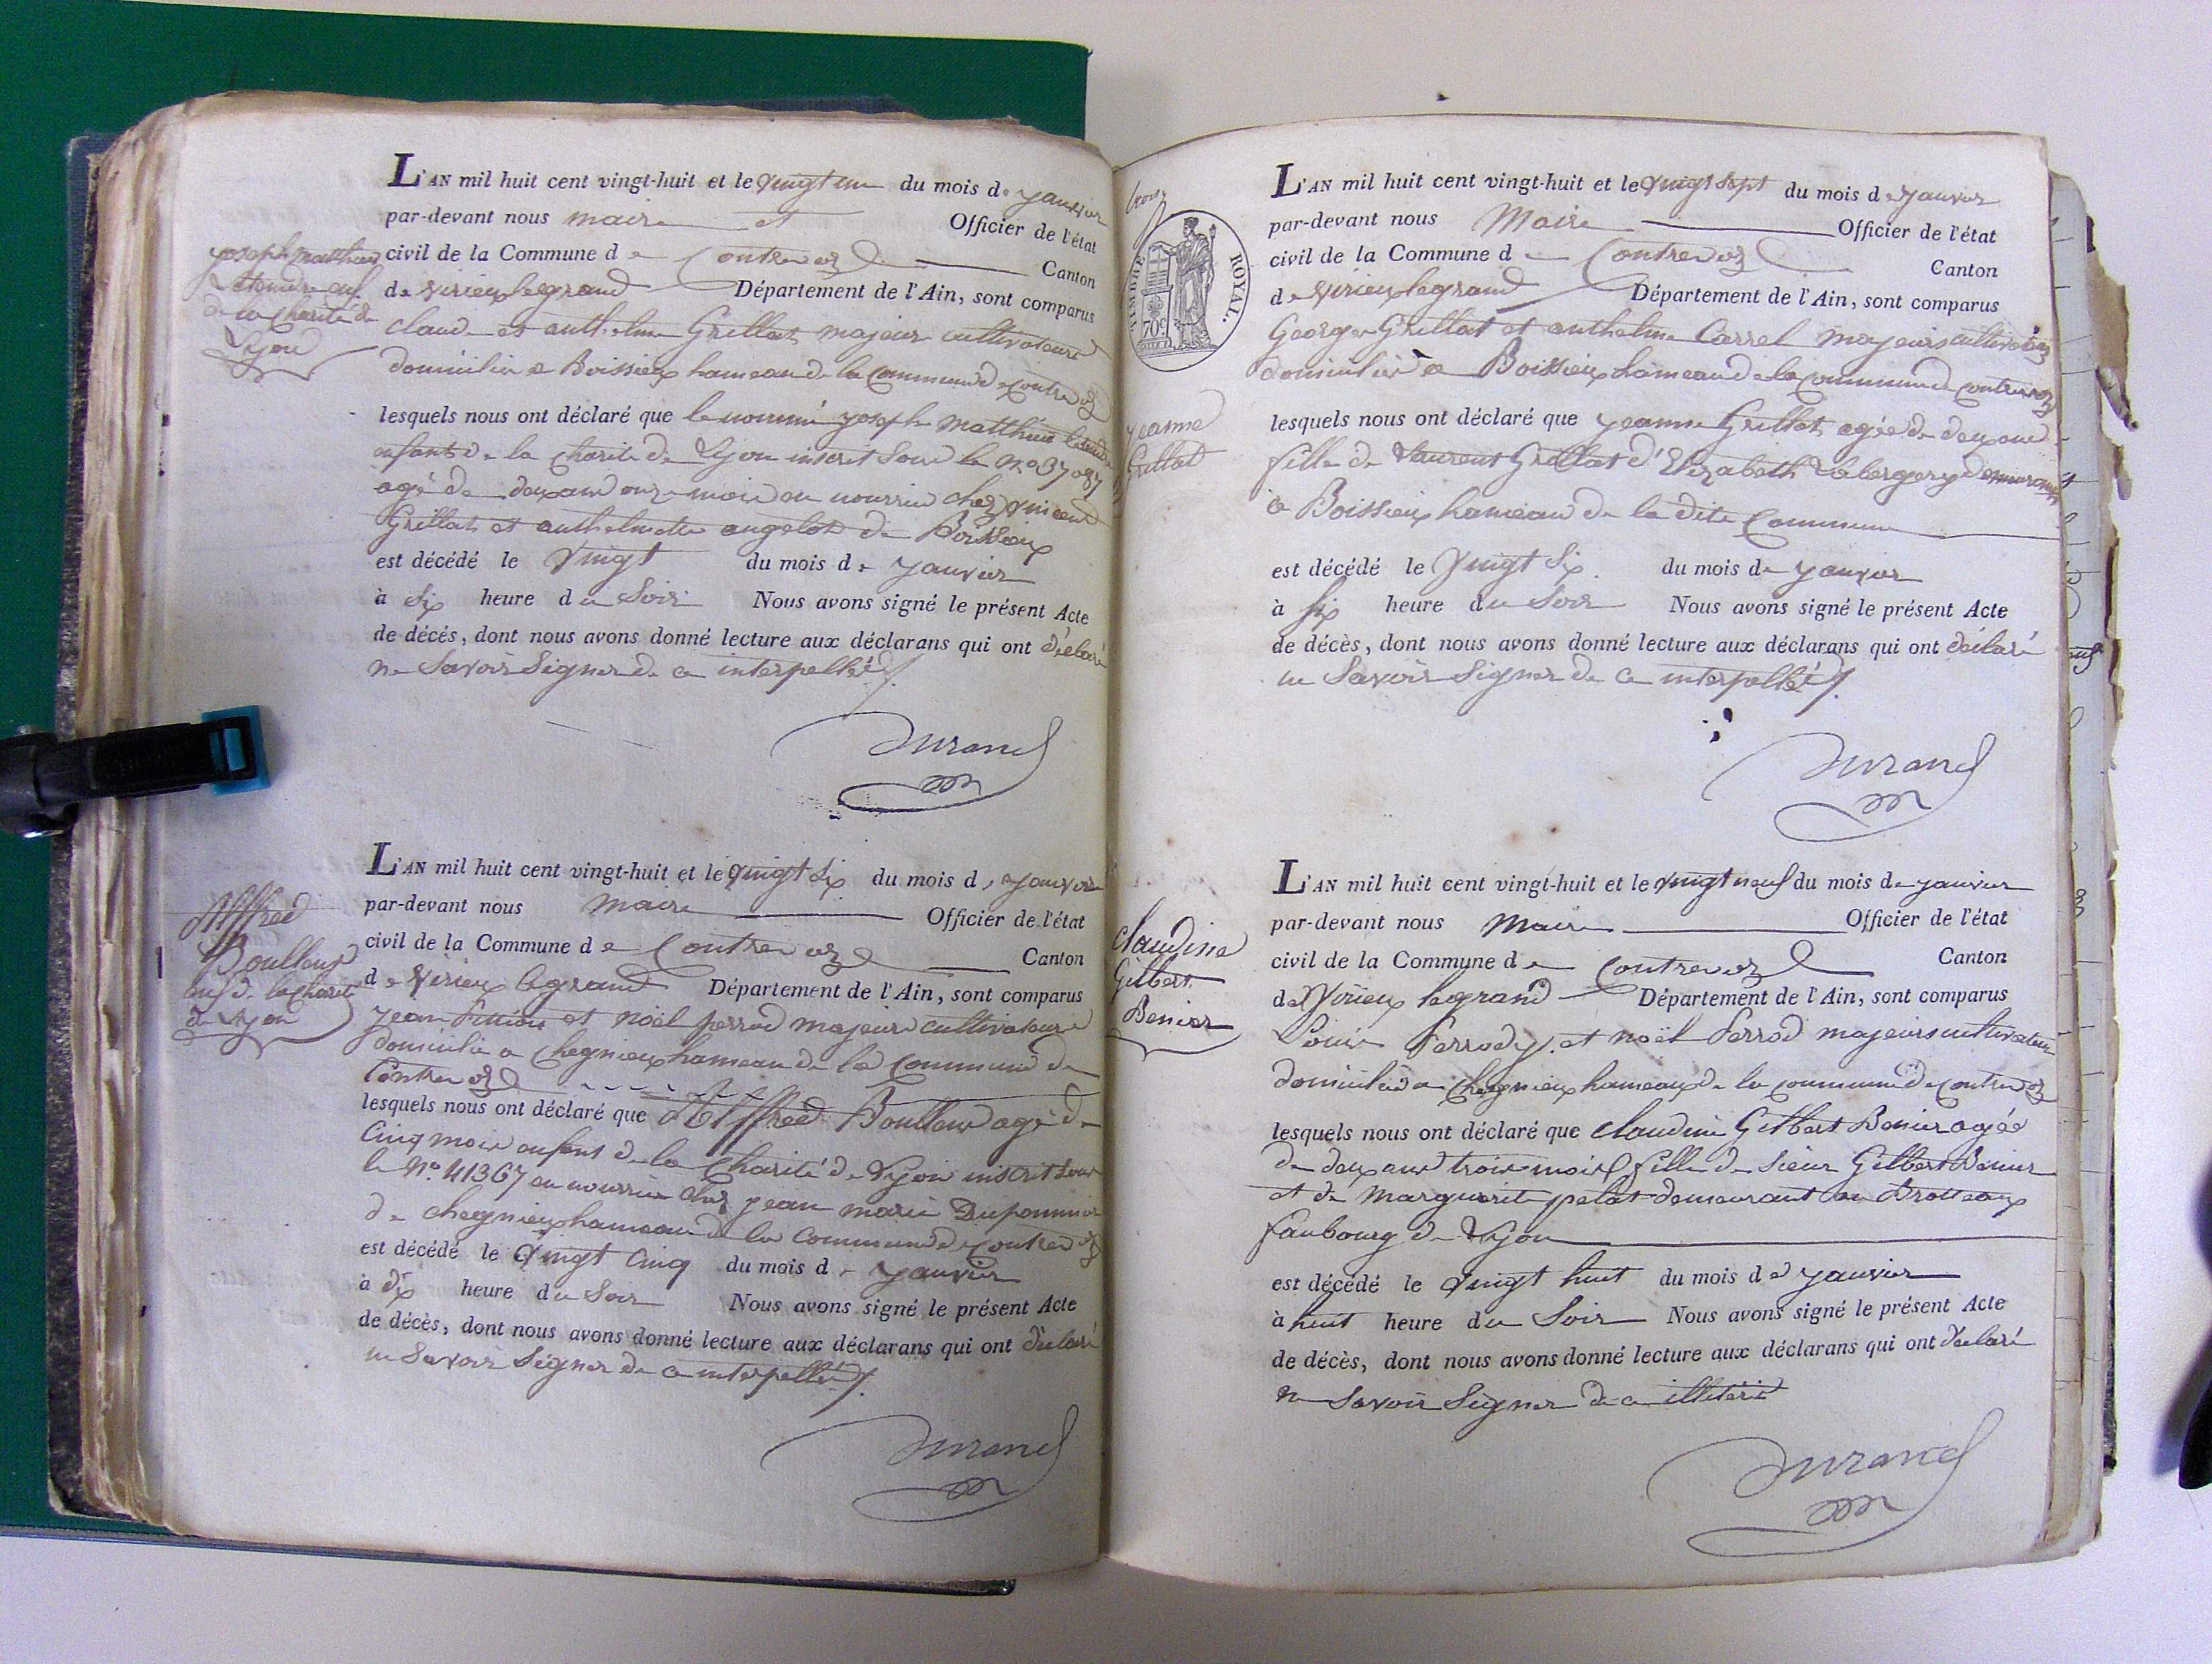 L'AN mil huit cent vingt-huit et le vingt un du mois de janvier
par-devant nous maire et Officier de l'état
civil de la Commune de Contrevoz Canton
de virieu legrand Département de l'Ain, sont comparus
claude et anthelme Grillat majeur cultivateurs
domicilié a Boissieu hameau de la commune de contrevoz
lesquels nous ont déclaré que le nommé joseph Matthieu
enfant de la charité de Lyon inscrit sous le n.o 37087
agé de deux ans onze mois en nourrice chez vincent
Grillat et anthelmette angelot de Boissieu
est décédé le vingt du mois de janvier
à six heure du soir Nous avons signé le présent Acte
de décés, dont nous avons donné lecture aux déclarans qui ont déclaré
ne savoir signer de ce interpellés
Durand
joseph matthieu
enf.
de la charité de
Lyon
L'AN mil huit cent vingt-huit et le vingt six du mois de janvier
par-devant nous maire Officier de l'état
civil de la Commune de Contrevoz Canton
de virieu legrand Département de l'Ain, sont comparus
jean et noël perrod majeurs cultivateurs
domicilié a chegnieu hameau de la commune de
Contrevoz
lesquels nous ont déclaré que Alffred Boulleux agé de
cinq mois enfant de la charité de Lyon inscrit sous
le N.o 41367 en nourrice chez jean marie Duponnier
de chegnieu hameau de la commune de contrevoz
est décédé le vingt cinq du mois de janvier
à dix heure du soir Nous avons signé le présent Acte
de décès, dont nous avons donné lecture aux déclarans qui ont déclaré
ne savoir signer de ce interpellés
Durand
Alffred
Boulleux
enf de la charité
de Lyon
L'AN mil huit cent vingt-huit et le vingt sept du mois de janvier
par-devant nous Maire Officier de l'état
civil de la Commune de Contrevoz Canton
de virieu legrand Département de l'Ain, sont comparus
George Grillat et anthelme Carrel majeurs cultivateurs
domicilié a Boissieu hameau de la commune de contrevoz
lesquels nous ont déclaré que jeanne Grillat agée de deux ans
fille de Laurent Grillat d'Elizabeth Labergery demeurants
a Boissieu hameau de la dite Commune
est décédé le vingt six du mois de janvier
à six heure du soir Nous avons signé le présent Acte
de décès, dont nous avons donné lecture aux déclarans qui ont déclaré
ne savoir signer de ce interpellés
Durand
TIMBRE ROYAL.
70c
jeanne
Grillat
L'AN mil huit cent vingt-huit et le vingt neuf du mois de janvier
par-devant nous Maire Officier de l'état
civil de la Commune de Contrevoz Canton
de Virieu legrand Département de l'Ain, sont comparus
Louis Perrody et noël Perrod majeurs cultivateurs
domiciliés a chegnieu hameaux de la commune de contrevoz
lesquels nous ont déclaré que claudine Gilbert Benier agée
de deux ans trois mois fille de sieur Gilbert Benier
et de Marguerite pelat demeurant au Brotteaux
faubourg de Lyon
est décédé le vingt huit du mois de janvier
à huit heure du soir Nous avons signé le présent Acte
de décès, dont nous avons donné lecture aux déclarans qui ont déclaré
ne savoir signer de ce illitéré
Durand
claudine
Gilbert
Benier